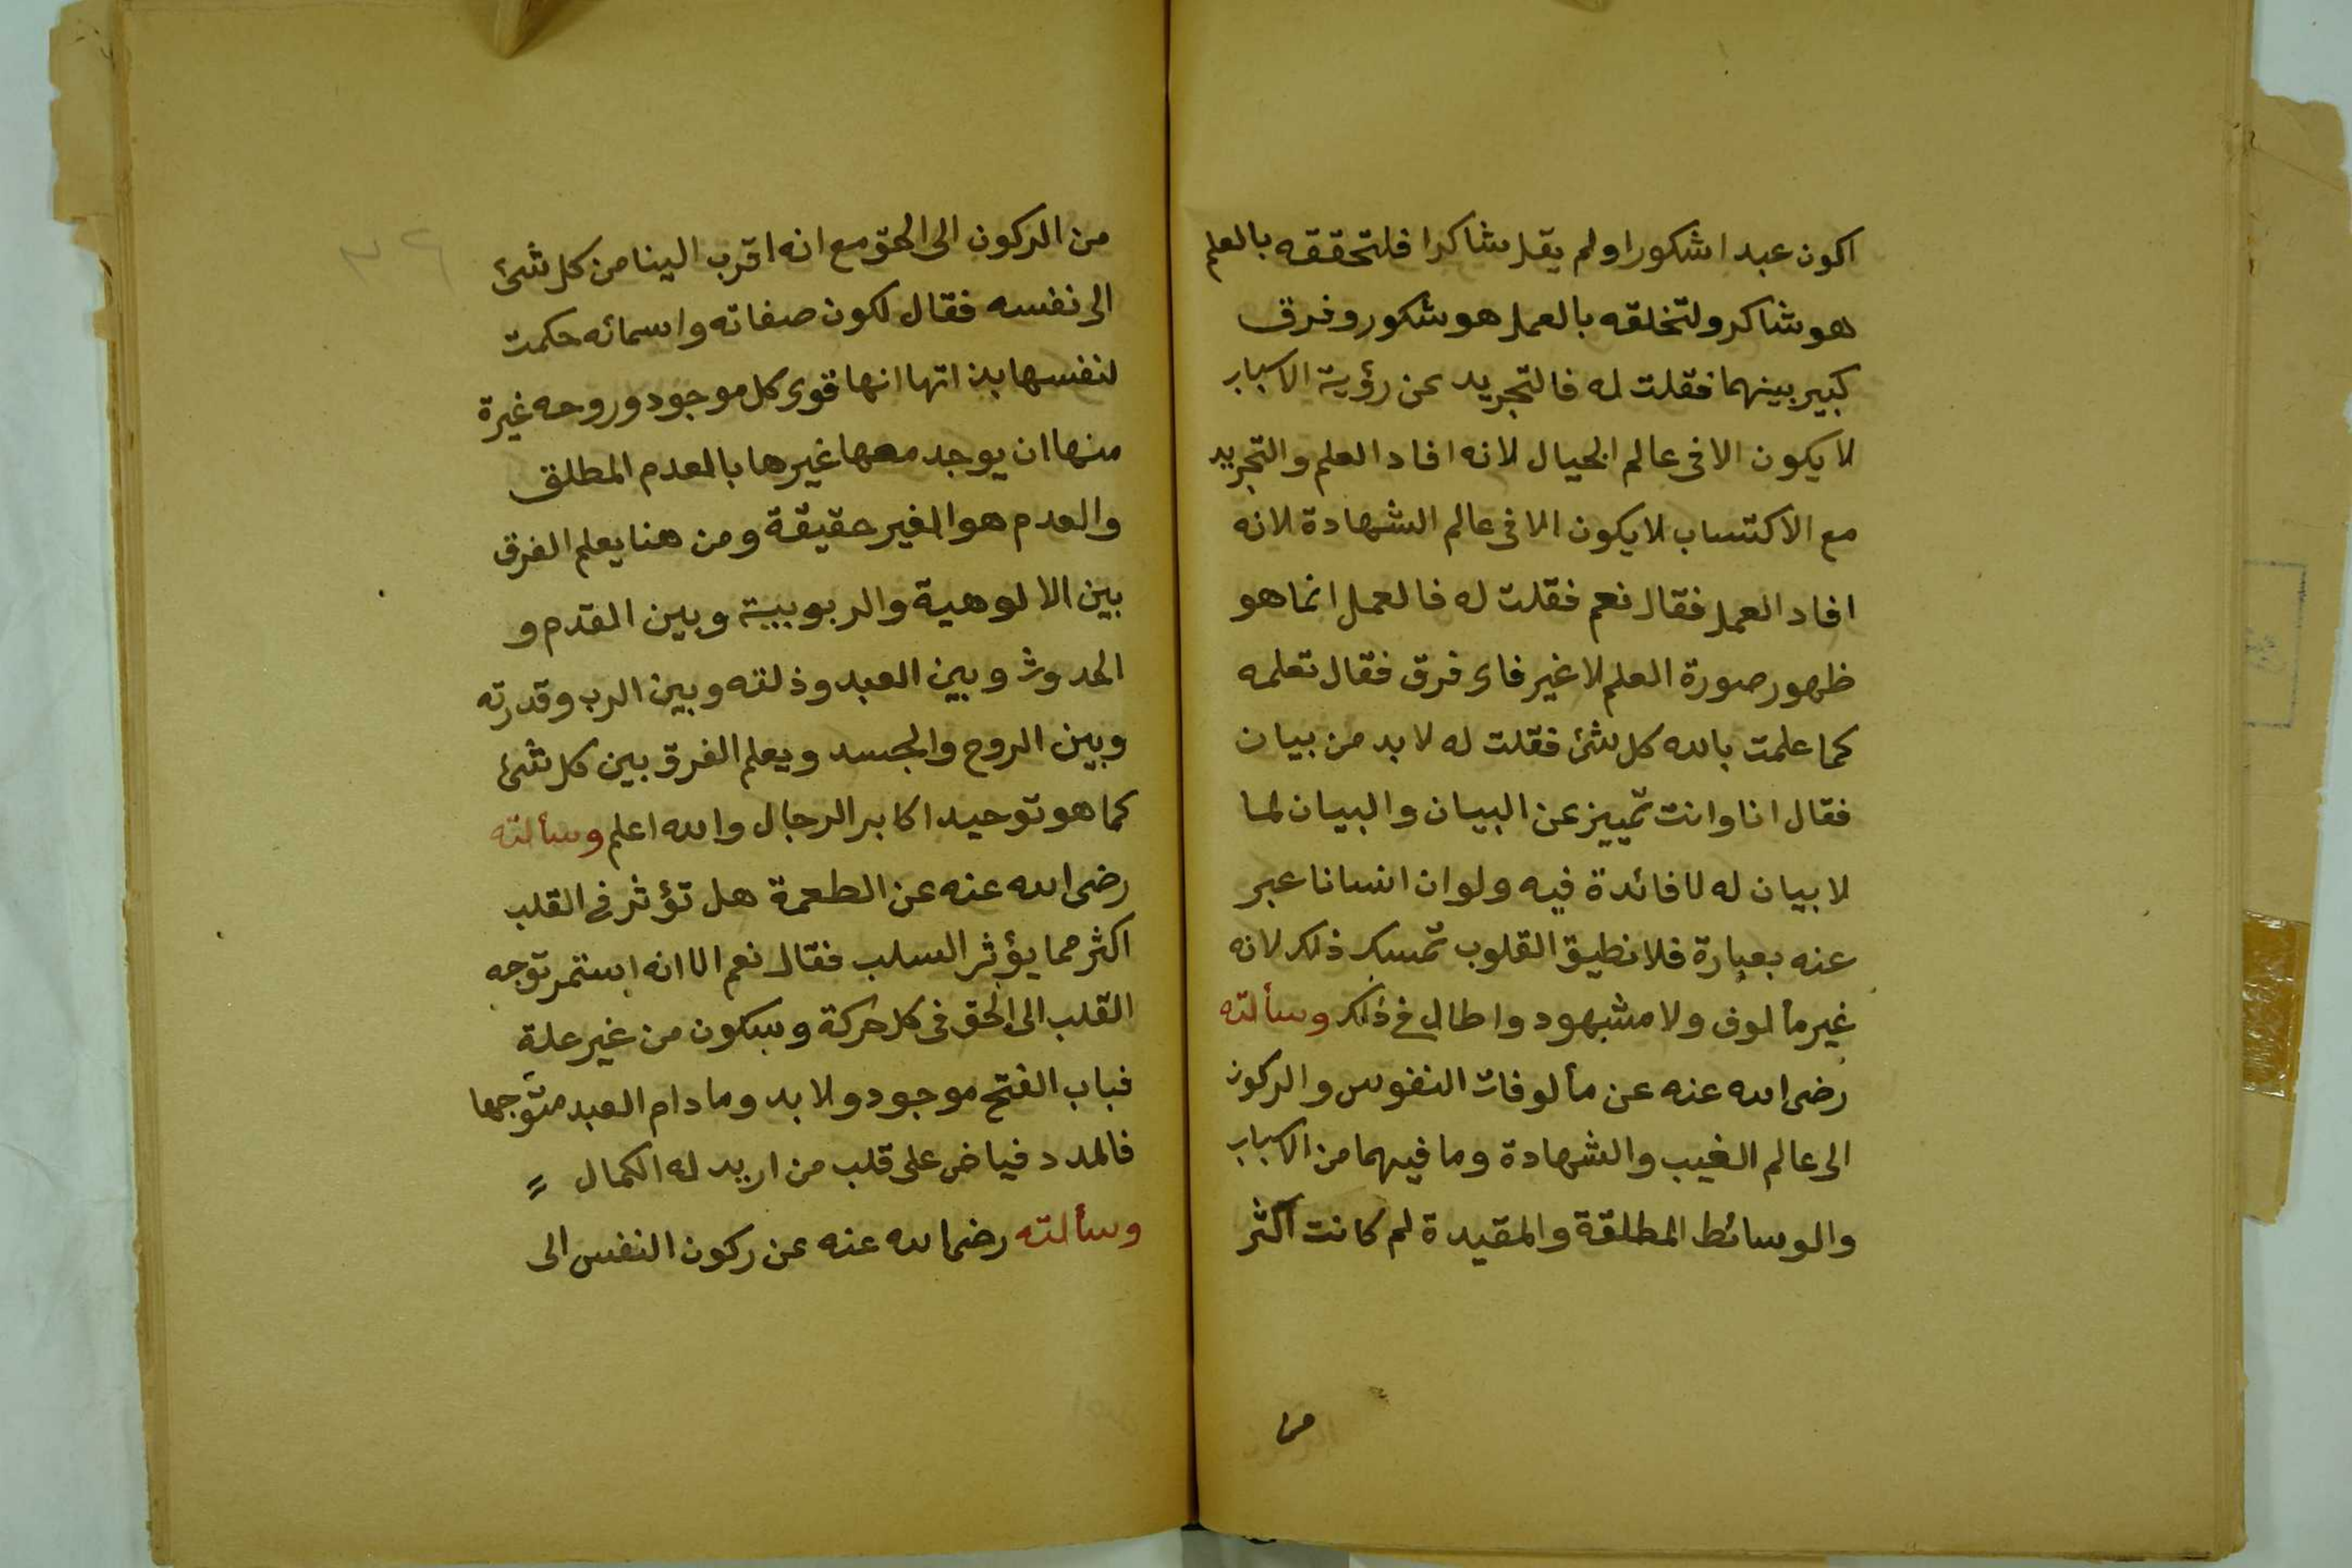 اكون عبدا شكورا ولم يقل شاكرا فلتحققه بالعلم
هو شاكر ولتخلقه بالعمل هو شكور وفرق
كبير بينهما فقلت له فالتجريد عن رؤية الاسباب
لا يكون الا فى عالم الخيال لانه افاد العلم والتجريد
مع الاكتساب لا يكون الا فى عالم الشهادة لانه
افاد العمل فقال نعم فقلت له فالعمل انما هو
ظهور صورة العلم لا غير فاى فرق فقال تعلمه
كما علمت بالله كل شئ فقلت له لا بد من بيان
فقال انا وانت تمييز عن البيان والبيان لما
لا بيان له لا فائدة فيه ولو ان انسانا عبر
عنه بعبارة فلا نطيق القلوب تمسك ذلك لانه
غير مألوف ولا مشهود واطال فى ذلك وسألته
رضى الله عنه عن مألوفات النفوس والركون
الى عالم الغيب والشهادة وما فيهما من الاسباب
والوسائط المطلقة والمقيدة لم كانت اكثر
من
من الركون الى الحق مع انه اقرب الينا من كل شئ
الى نفسه فقال لكون صفاته واسمائه حكمت
لنفسها بذاتها انها قوى كل موجود وروحه غيرة
منها ان يوجد معها غيرها بالعدم المطلق
والعدم هو الغير حقيقة ومن هنا يعلم الفرق
بين الالوهية والربوبية وبين القدم و
الحدوث وبين العبد وذلته وبين الرب وقدرته
وبين الروح والجسد ويعلم الفرق بين كل شئ
كما هو توحيد اكابر الرجال والله اعلم وسألته
رضى الله عنه عن الطعمة هل تؤثر فى القلب
اكثر مما يؤثر السلب فقال نعم الا انه استمر توجه
القلب الى الحق فى كل حركة وسكون من غير علة
فباب الفتح موجود ولا بد وما دام العبد متوجها
فالمدد فياض على قلب من اريد له الكمال
وسألته رضى الله عنه عن ركون النفس الى